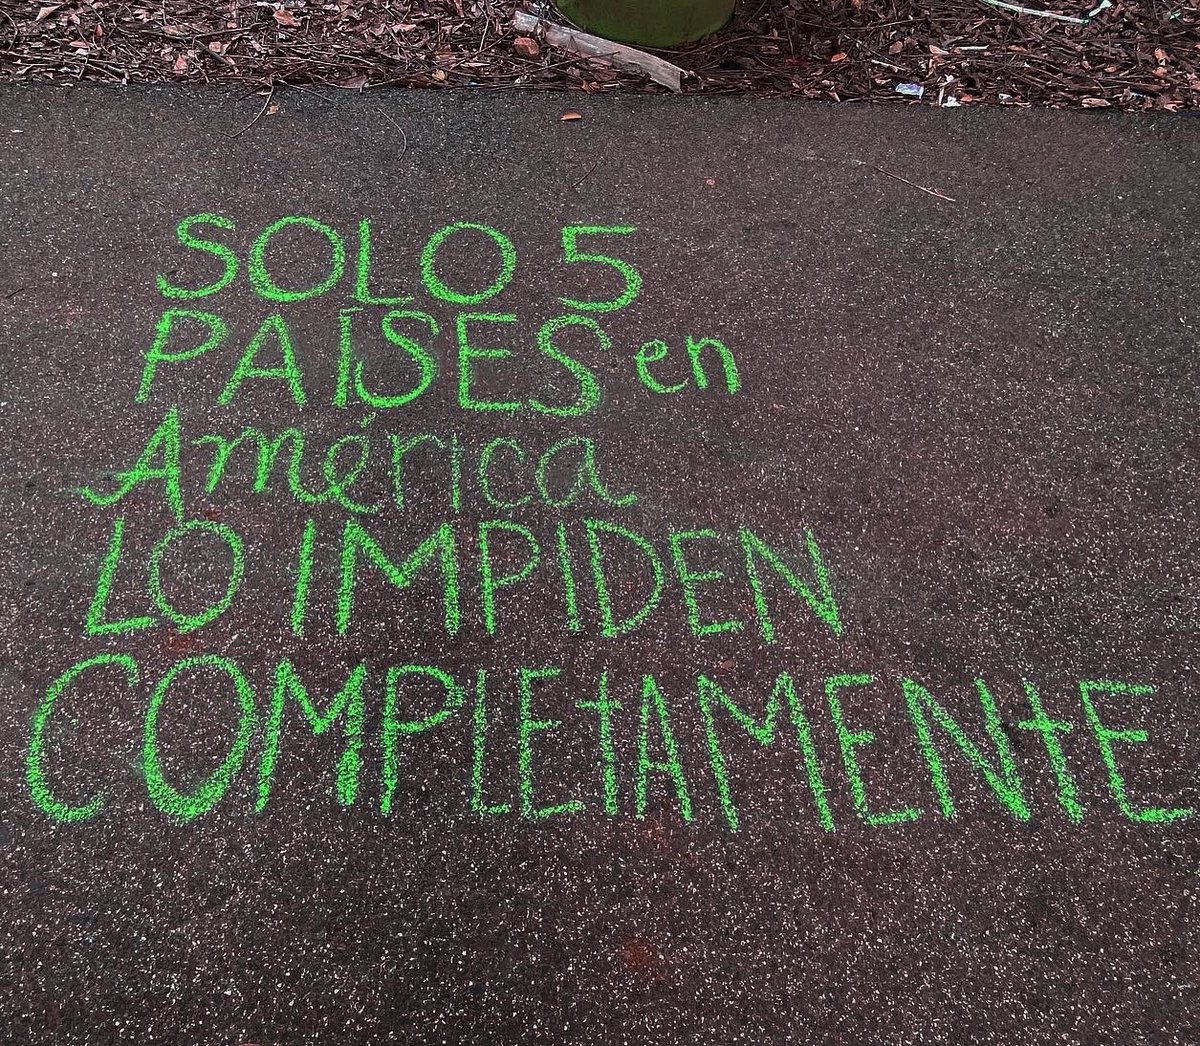 SOLO 5
PAÍSES en
América
LO IMPIDEN
COMPLEtAMENtE